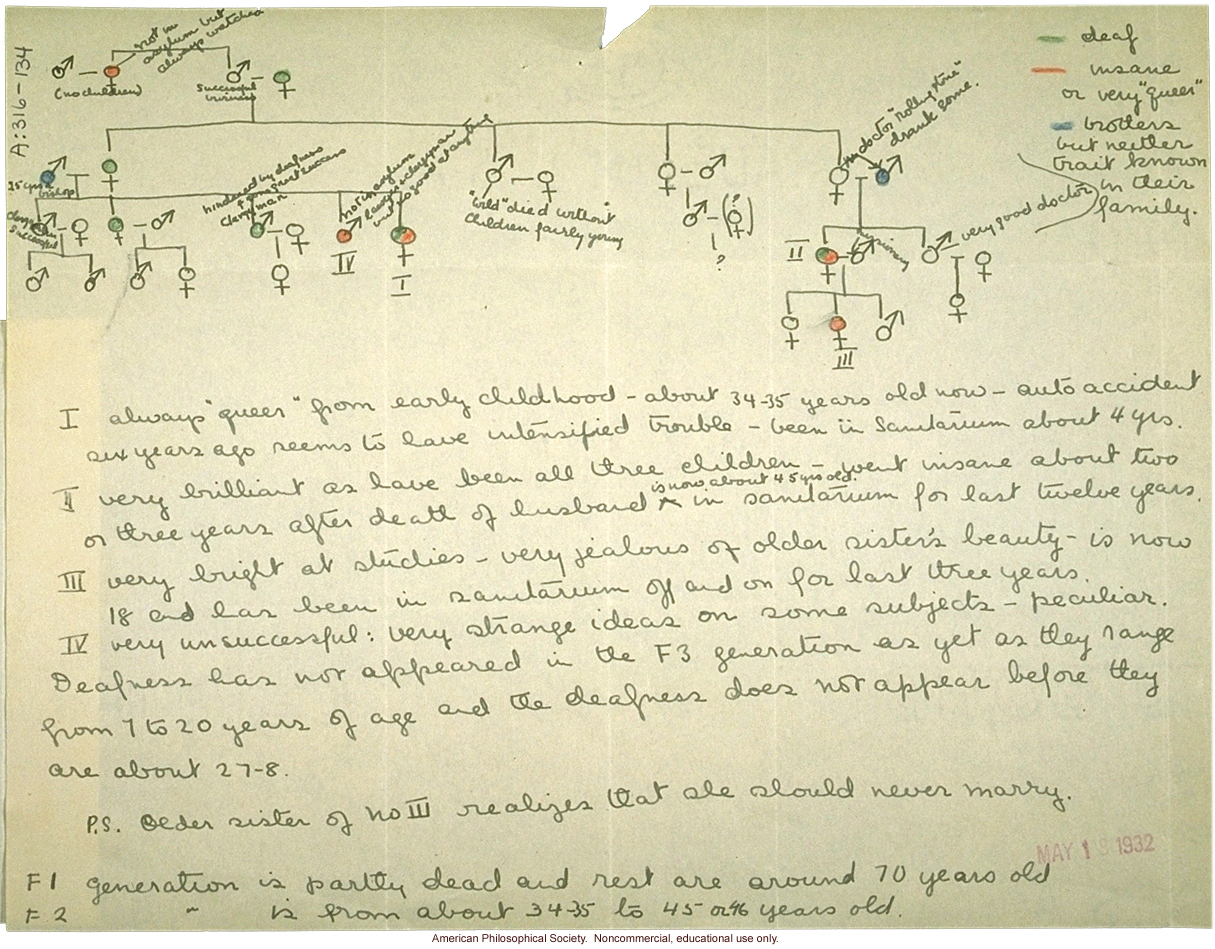 A:316-134
not in
asylum but
always watched
(no children)
successful
business
deaf
insane
or very "queer"
brothers
but neither
trait known
in their
family.
doctor "rolling stone"
drank some.
25 yrs a
bishop
clergyman
successful
hindered by deafness
from great success
clergyman
not in asylum
lawyer, clergyman
but no good at anything
"wild" died without
children fairly young
(?)
?
very good doctor
missionary
II
IV
I
III
I always "queer" from early childhood - about 34-35 years old now - auto accident
six years ago seems to have intensified trouble - been in Sanitarium about 4 yrs.
II very brilliant as have been all three children - went insane about two
is now about 45 yrs old.
or three years after death of husband ^ in sanitarium for last twelve years.
III very bright at studies - very jealous of older sister's beauty - is now
18 and has been in sanitarium off and on for last three years.
IV very unsuccessful: very strange ideas on some subjects - peculiar.
Deafness has not appeared in the F3 generation as yet as they range
from 7 to 20 years of age and the deafness does not appear before they
are about 27-8.
P.S. Older sister of no III realizes that she should never marry.
MAY 1 1932
F1 generation is partly dead and rest are around 70 years old
F2 " is from about 34-35 to 45 or 46 years old.
American Philosophical Society. Noncommercial, educational use only.